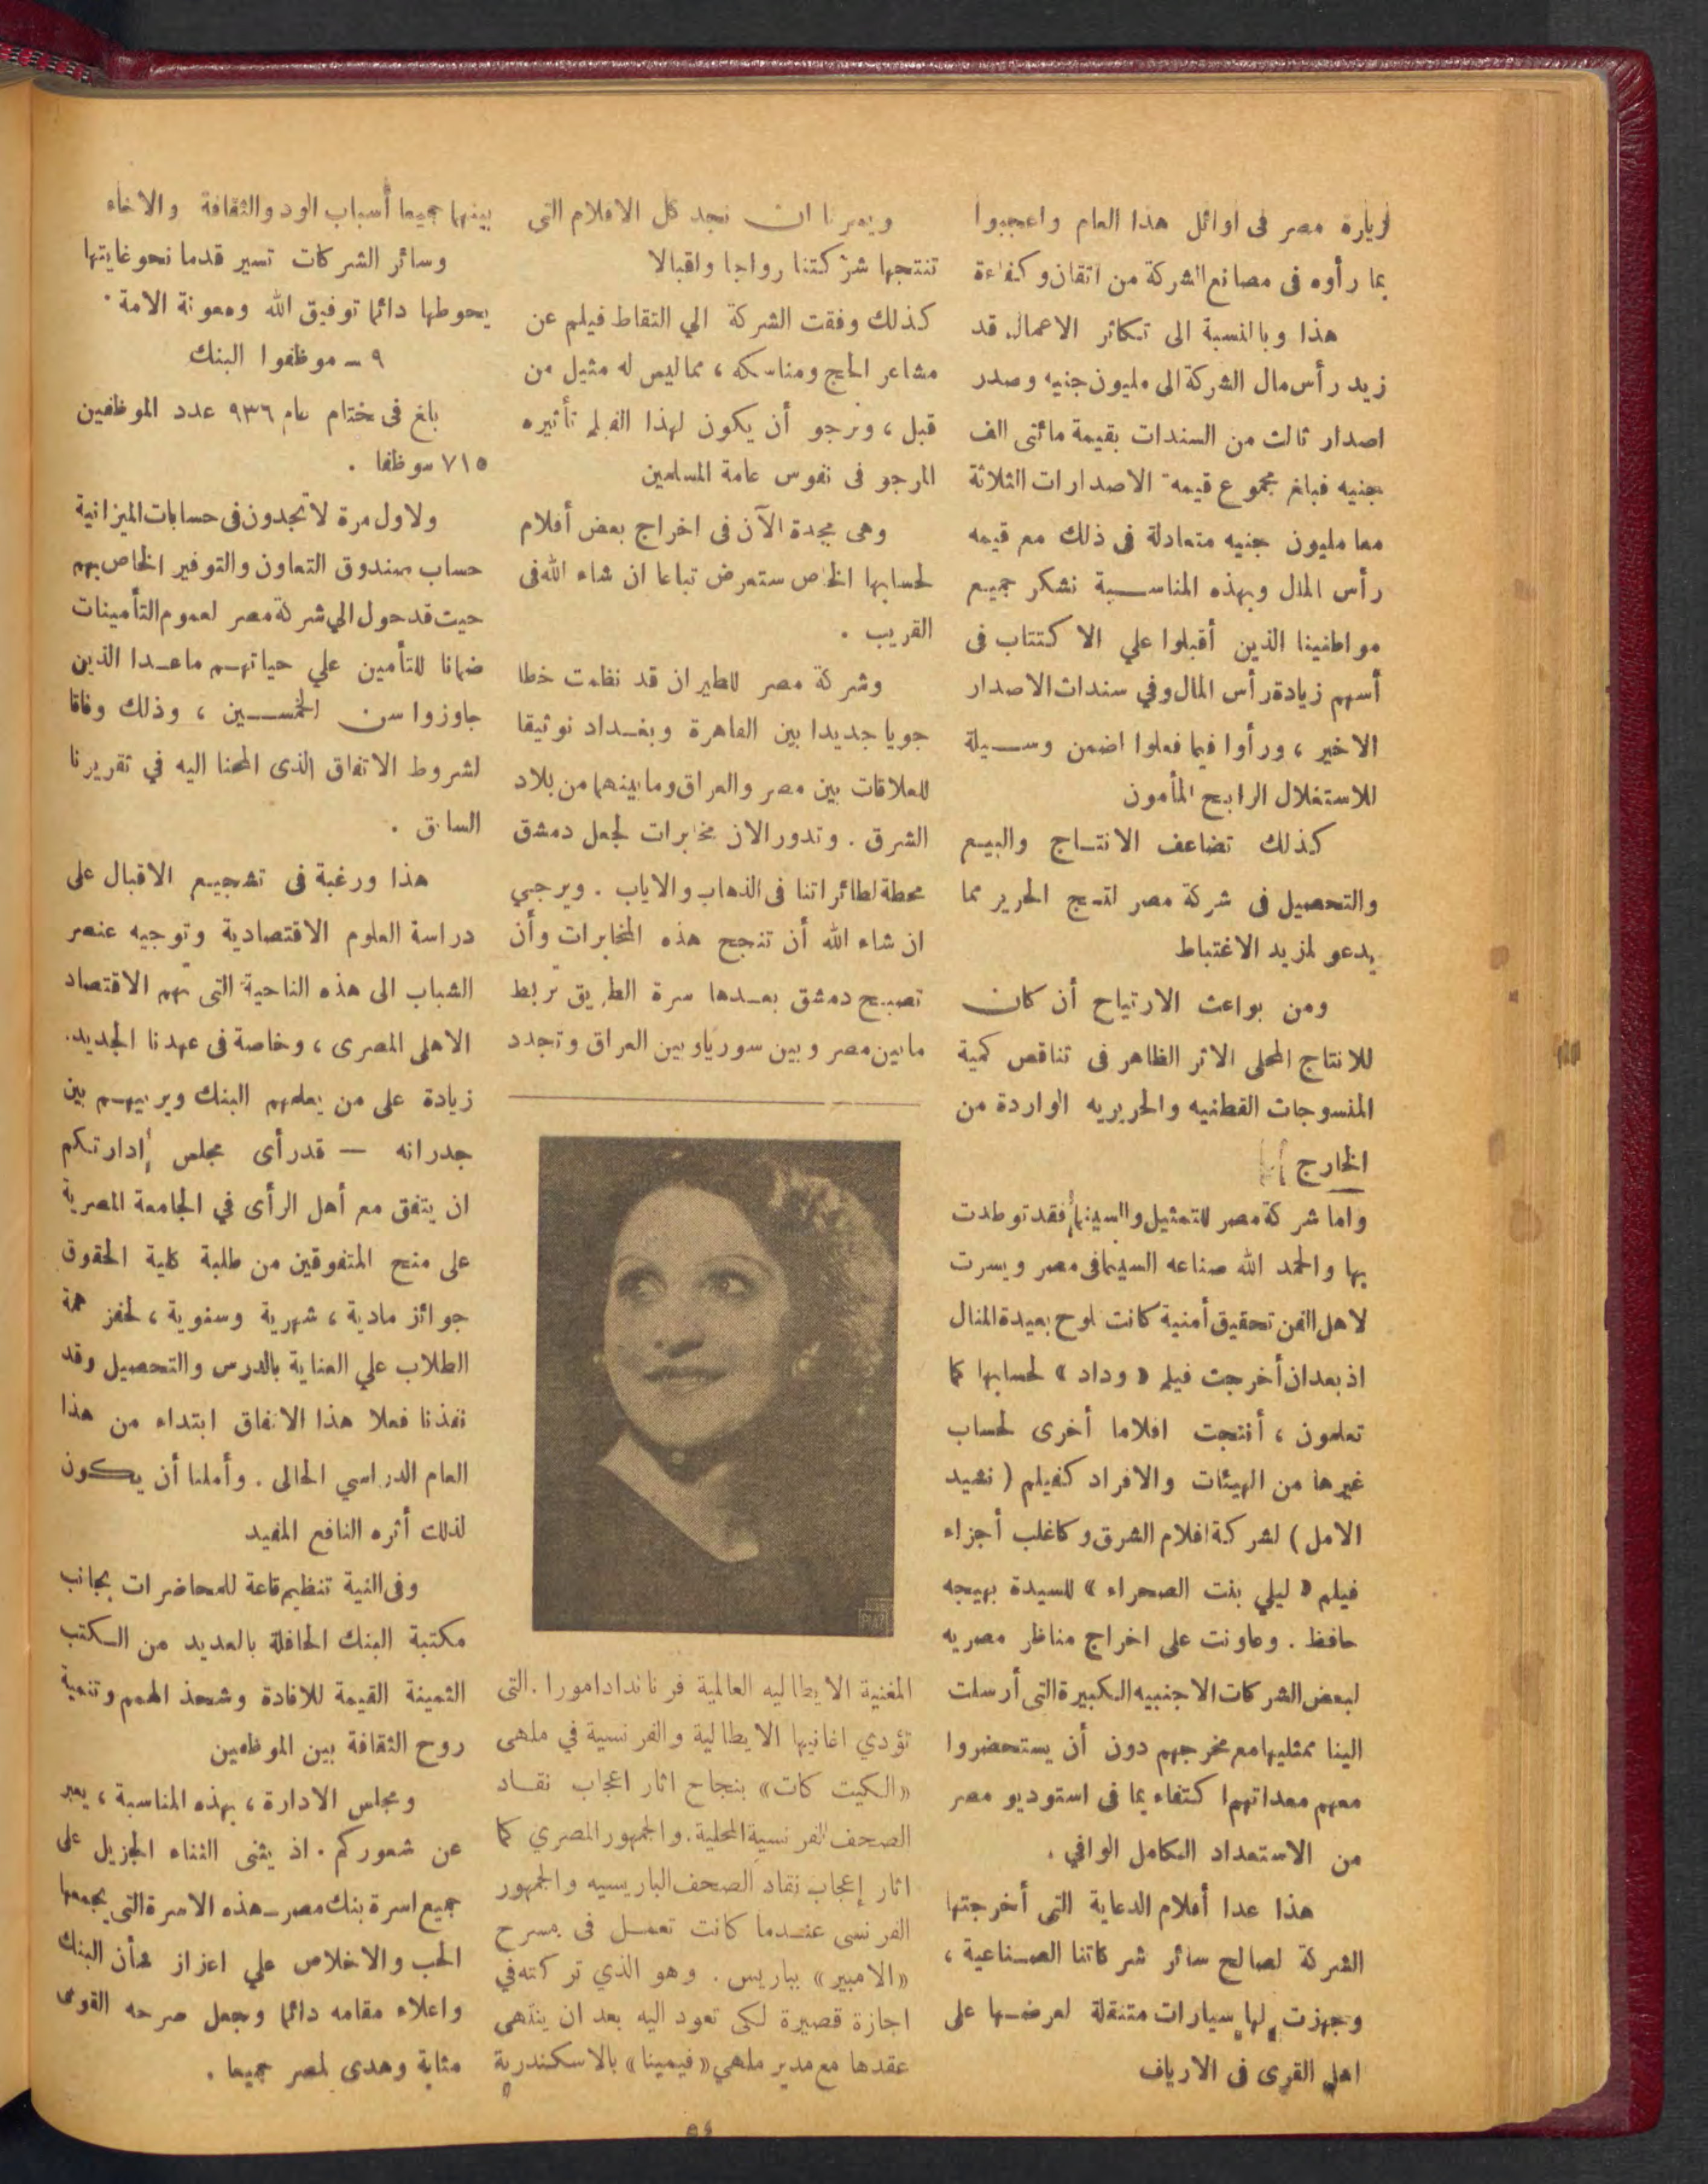 لزيارة مصر فى اوائل هذا العام واعجبوا
بما رأوه فى مصانع الشركة من اتقان وكفاءة
هذا وبالنسبة الى تكاثر الاعمال قد
زيد رأس مال الشركة الى مليون جنيه وصدر
اصدار ثالث من السندات بقيمة مائتى الف
جنيه فبلغ مجموع قيمة الاصدارات الثلاثة
معا مليون جنيه متعادلة فى ذلك مع قيمه
رأس المال وبهذه المناسبة نشكر جميع
مواطنينا الذين أقبلوا علي الاكتتاب فى
أسهم زيادة رأس المال وفي سندات الاصدار
الاخير ، ورأوا فيما فعلوا اضمن وسيلة
للاستغلال الرابح المأمون
كذلك تضاعف الانتاج والبيع
والتحصيل فى شركة مصر لنسج الحرير مما
يدعو لمزيد الاغتباط
ومن بواعث الارتياح أن كان
للانتاج المحلى الاثر الظاهر فى تناقص كمية
المنسوجات القطنيه والحريريه الواردة من
الخارج
واما شركة مصر للتمثيل والسينما فقد توطدت
بها والحمد الله صناعه السينما فى مصر ويسرت
لاهل الفن تحقيق أمنية كانت تلوح بعيدة المنال
اذ بعد ان أخرجت فيلم « وداد » لحسابها كما
تعلمون ، أنتجت افلاما أخرى لحساب
غيرها من الهيئات والافراد كفيلم ( نشيد
الامل ) لشركة افلام الشرق وكاغلب أجزاء
فيلم « ليلي بنت الصحراء » للسيدة بهيجه
حافظ . وعاونت على اخراج مناظر مصريه
لبعض الشركات الاجنبيه الكبيرة التى أرسلت
الينا ممثليها مع مخرجهم دون أن يستحضروا
معهم معداتهم اكتفاء بما فى استوديو مصر
من الاستعداد الكامل الوافي .
هذا عدا أفلام الدعاية التى أخرجتها
الشركة لصالح سائر شركاتنا الصناعية ،
وجهزت لها سيارات متنقلة لعرضها على
اهل القرى فى الارياف
ويسرنا ان نجد كل الافلام التى
تنتجها شركتنا رواجا واقبالا
كذلك وفقت الشركة الي التقاط فيلم عن
مشاعر الحج ومناسكه ، مما ليس له مثيل من
قبل ، ونرجو أن يكون لهذا الفيلم تأثيره
المرجو فى نفوس عامة المسلمين
وهى مجدة الآن فى اخراج بعض أفلام
لحسابها الخاص ستعرض تباعا ان شاء الله فى
القريب .
وشركة مصر للطيران قد نظمت خطا
جويا جديدا بين القاهرة وبغداد توثيقا
للعلاقات بين مصر والعراق وما بينهما من بلاد
الشرق . وتدور الان مخابرات لجعل دمشق
محطة لطائراتنا فى الذهاب والاياب . ويرجي
ان شاء الله أن تنجح هذه المخابرات وأن
تصبح دمشق بعدها سرة الطريق تربط
ما بين مصر وبين سوريا وبين العراق وتجدد
المغنية الايطاليه العالمية فرناندادامورا . التى
تؤدي اغانيها الايطالية والفرنسية في ملهى
«الكيت كات» بنجاح اثار اعجاب نقاد
الصحف الفرنسية المحلية . والجمهور المصري كما
اثار إعجاب نقاد الصحف الباريسيه والجمهور
الفرنسى عندما كانت تعمل فى مسرح
«الامبير» بباريس . وهو الذي تركته في
اجازة قصيرة لكى تعود اليه بعد ان ينتهى
عقدها مع مدير ملهي «فيمينا» بالاسكندرية
بينهما جميعا أسباب الود والثقافة والاخاء
وسائر الشركات تسير قدما نحو غايتها
يحوطها دائما توفيق الله ومعونة الامة .
٩ ــ موظفوا البنك
بلغ فى ختام عام ٩٣٦ عدد الموظفين
٧١٥ موظفا .
ولاول مرة لا تجدون فى حسابات الميزانية
حساب صندوق التعاون والتوفير الخاص بهم
حيث قد حول الي شركة مصر لعموم التأمينات
ضمانا للتأمين علي حياتهم ما عدا الذين
جاوزوا سن الخمسين ، وذلك وفاقا
لشروط الاتفاق الذى المحنا اليه في تقريرنا
السابق .
هذا ورغبة فى تشجيع الاقبال على
دراسة العلوم الاقتصادية وتوجيه عنصر
الشباب الى هذه الناحية التى تهم الاقتصاد
الاهلى المصرى ، وخاصة فى عهدنا الجديد .
زيادة على من يعلمهم البنك ويربيهم بين
جدرانه — قد رأى مجلس إدارتكم
ان يتفق مع أهل الرأى في الجامعة المصرية
على منح المتفوقين من طلبة كلية الحقوق
جوائز مادية ، شهرية وسنوية ، لحفز همة
الطلاب علي العناية بالدرس والتحصيل وقد
نفذنا فعلا هذا الاتفاق ابتداء من هذا
العام الدراسي الحالى . وأملنا أن يكون
لذلك أثره النافع المفيد
وفى النية تنظيم قاعة للمحاضرات بجانب
مكتبة البنك الحافلة بالعديد من الكتب
الثمينة القيمة للافادة وشحذ الهمم وتنمية
روح الثقافة بين الموظفين
ومجلس الادارة ، بهذه المناسبة ، يعبر
عن شعوركم . اذ يثنى الثناء الجزيل على
جميع اسرة بنك مصر ــ هذه الاسرة التى يجمعها
الحب والاخلاص علي اعزاز شأن البنك
واعلاء مقامه دائما وجعل صرحه القومى
مثابة وهدى لمصر جميعا .